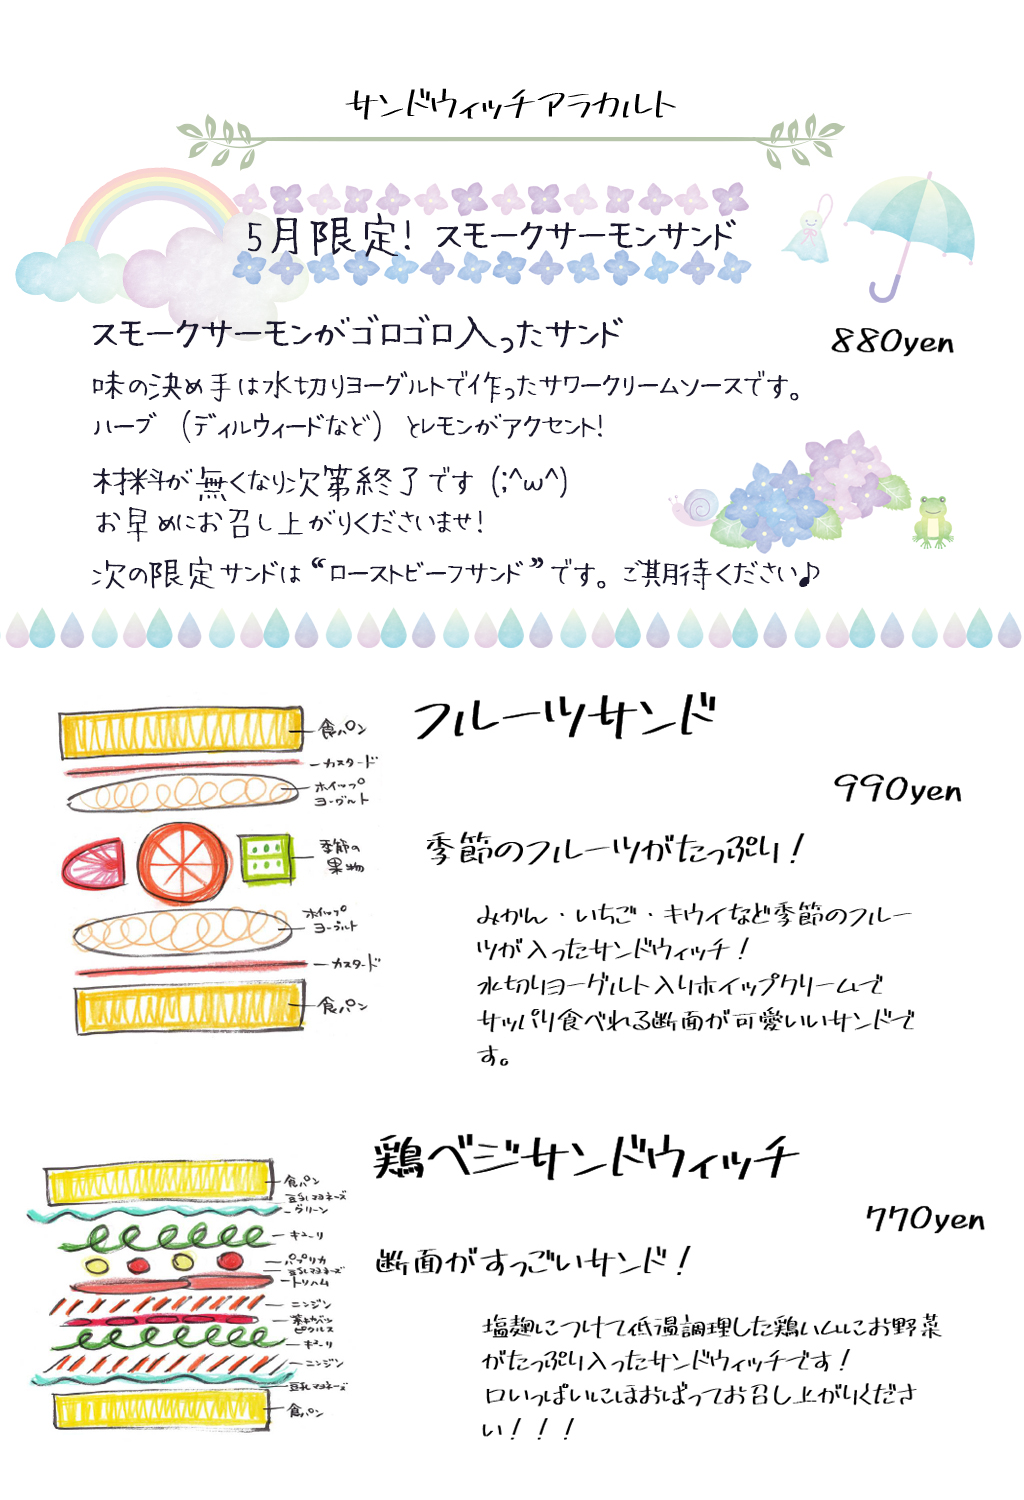 サンドウィッチアラカルト
5月限定! スモークサーモンサンド
スモークサーモンがゴロゴロ入ったサンド
880yen
味の決め手は水切りヨーグルトで作ったサワークリームソースです。
ハーブ (ディルウィードなど) とレモンがアクセント!
材料が無くなり次第終了です (;^ω^)
お早めにお召し上がりくださいませ!
次の限定サンドは“ローストビーフサンド”です。ご期待ください♪
フルーツサンド
990yen
食パン
カスタード
ホイップ
ヨーグルト
季節の
果物
ホイップ
ヨーグルト
カスタード
食パン
季節のフルーツがたっぷり!
みかん・いちご・キウイなど季節のフルー
ツが入ったサンドウィッチ!
水切りヨーグルト入りホイップクリームで
サッパリ食べれる断面が可愛いいサンドで
す。
鶏ベジサンドウィッチ
770yen
食パン
豆乳マヨネーズ
グリーン
キューリ
パプリカ
豆乳マヨネーズ
トリハム
ニンジン
紫キャベツ
ピクルス
キューリ
ニンジン
豆乳マヨネーズ
食パン
断面がすっごいサンド!
塩麹につけて低温調理した鶏ハムにお野菜
がたっぷり入ったサンドウィッチです!
口いっぱいにほおばってお召し上がりくださ
い!!!